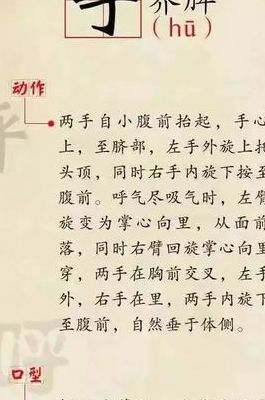 养脾
(hū)
动作
两手自小腹前抬起，手心
上，至脐部，左手外旋上托
头顶，同时右手内旋下按至
腹前。呼气尽吸气时，左臂
旋变为掌心向里，从面前
落，同时右臂回旋掌心向
穿，两手在胸前交叉，左手
外，右手在里，两手内旋下
至腹前，自然垂于体侧。
口型